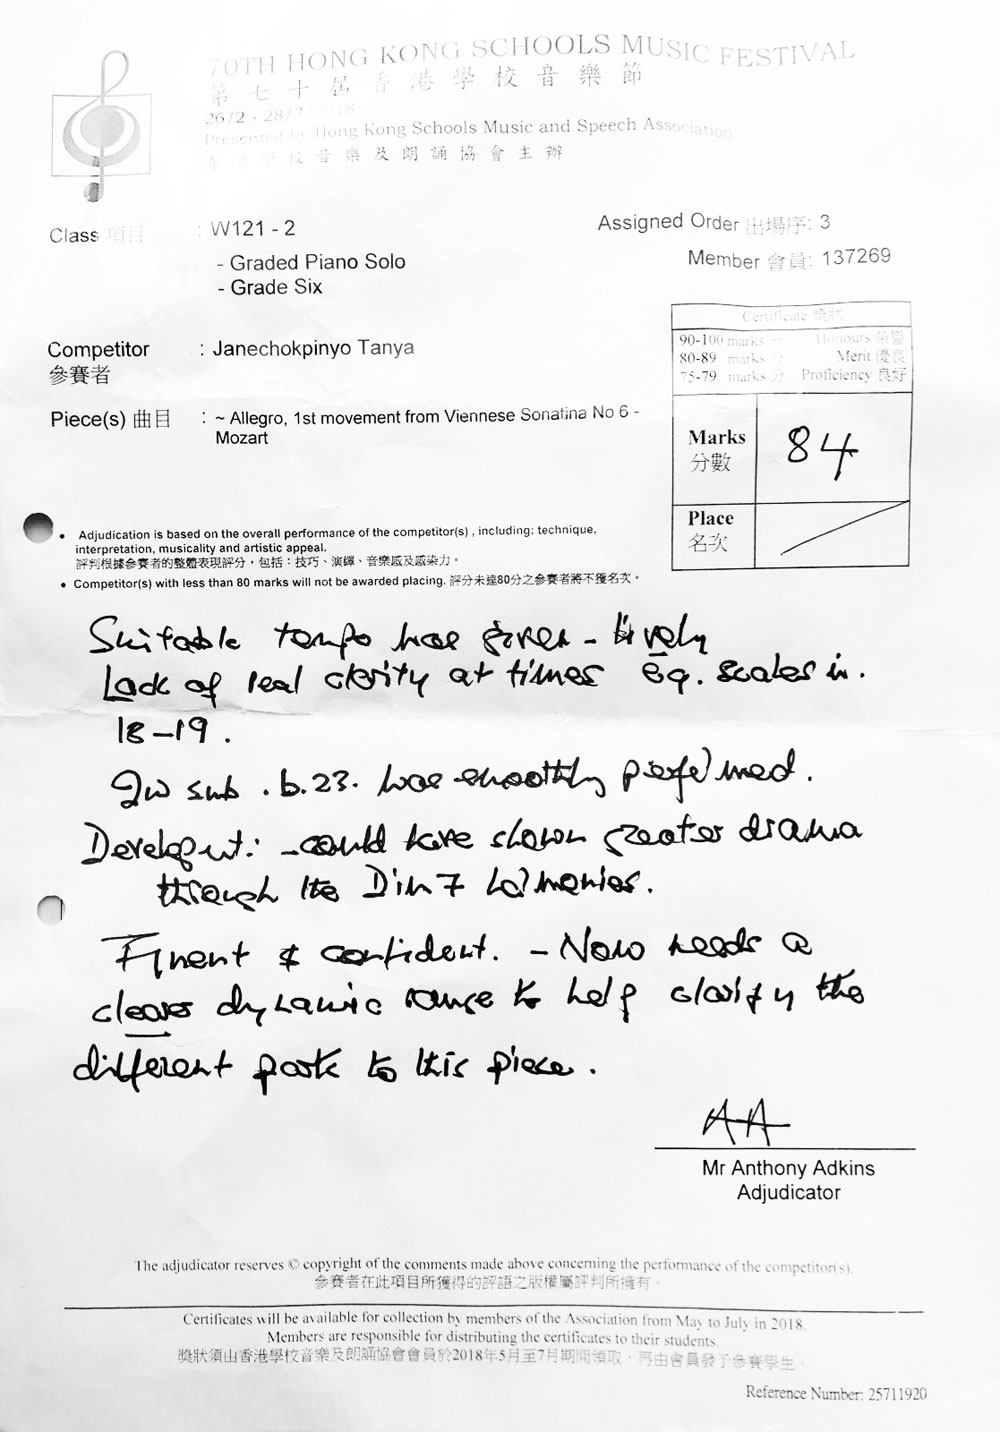 70TH HONG KONG SCHOOLS MUSIC FESTIVAL
第七十屆香港學校音樂節
26/2 - 28/3/2018
Presented by Hong Kong Schools Music and Speech Association
香港學校音樂及朗誦協會主辦
Class 項目 : W121 - 2
- Graded Piano Solo
- Grade Six
Assigned Order 出場序: 3
Member 會員: 137269
Competitor : Janechokpinyo Tanya
參賽者
Piece(s) 曲目 : ~ Allegro, 1st movement from Viennese Sonatina No 6 -
Mozart
Certificate 獎狀
90-100 marks 分 Honours 榮譽
80-89 marks 分 Merit 優良
75-79 marks 分 Proficiency 良好
Marks 84
分數
Place
名次
• Adjudication is based on the overall performance of the competitor(s) , including: technique,
interpretation, musicality and artistic appeal.
評判根據參賽者的整體表現評分，包括：技巧、演繹、音樂感及感染力。
• Competitor(s) with less than 80 marks will not be awarded placing. 評分未達80分之參賽者將不獲名次。
Suitable tempo was given - lively
Lack of real clarity at times Eg. scales in.
18-19.
2nd sub . b.23. was smoothly performed.
Develop'ut: - could have shown greater drama
through the Dim 7 harmonies.
Fluent & confident. - Now needs a
clearer dynamic range to help clarify the
different parts to this piece.
AA
Mr Anthony Adkins
Adjudicator
The adjudicator reserves © copyright of the comments made above concerning the performance of the competitor(s).
參賽者在此項目所獲得的評語之版權屬評判所擁有。
Certificates will be available for collection by members of the Association from May to July in 2018.
Members are responsible for distributing the certificates to their students.
獎狀須由香港學校音樂及朗誦協會會員於2018年5月至7月期間領取，再由會員發予參賽學生。
Reference Number: 25711920